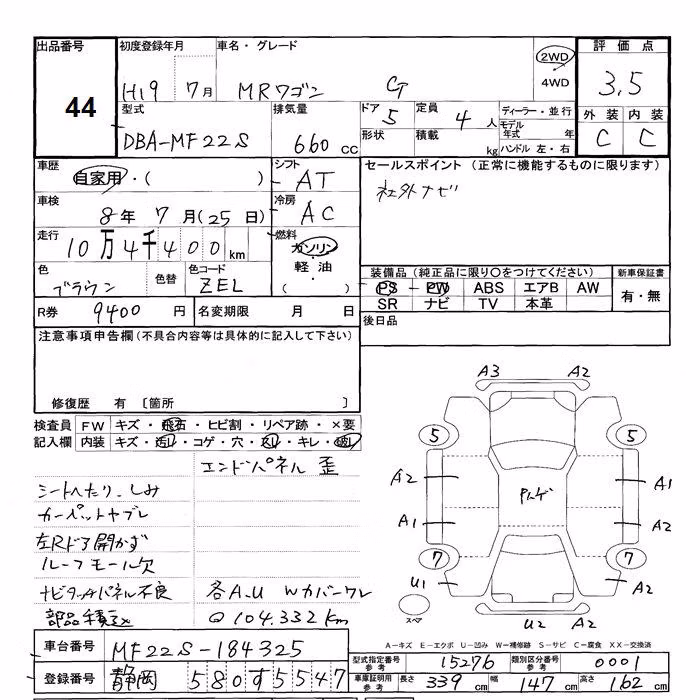 出品番号 初度登録年月 車名・グレード 2WD 評価点
44 H19 7月 MRワゴン G 4WD 3.5
型式 排気量 ドア 定員 ディーラー・並行 外装 内装
DBA-MF22S 660 cc 5 4人 モデル年式 年 C C
形状 積載 kg ハンドル 左・右
車歴 シフト セールスポイント (正常に機能するものに限ります)
自家用・( ) AT 社外ナビ
車検 8年7月(25日) 冷房 AC
走行 10万4千400km 燃料 ガソリン・軽油・( )
色 色替 色コード 装備品(純正品に限り〇をつけてください) 新車保証書
ブラウン ZEL PS PW ABS エアB AW 有・無
SR ナビ TV 本革
R券 9400円 名変期限 月 日 後日品
注意事項申告欄(不具合内容等は具体的に記入して下さい)
修復歴 有 〔箇所 〕
検査員 FW キズ・飛石・ヒビ割・リペア跡・×要
記入欄 内装 キズ・汚レ・コゲ・穴・スレ・キレ・
エンドパネル 歪
シートへたり、しみ
カーペットヤブレ
左Rドア開かず
ルーフモール欠
ナビタッチパネル不良 各A.U Wカバーワレ
104.332km
A3 A2
5 5
A2 A1
A1 A2
7 7
U1 A2
スペア U2 A2
A-キズ E-エクボ U-凹み W-補修跡 S-サビ C-腐食 XX-交換済
車台番号 MF22S-184325 型式指定番号 参考 15276 類別区分番号 参考 0001
登録番号 静岡 580す5547 車庫証明用 参考 長さ 339cm 幅 147cm 高さ 162cm